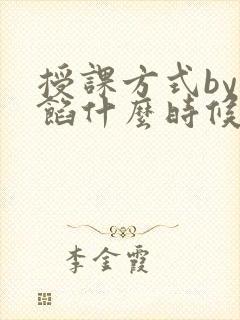 授課方式by
餡什麼時候
李金霞